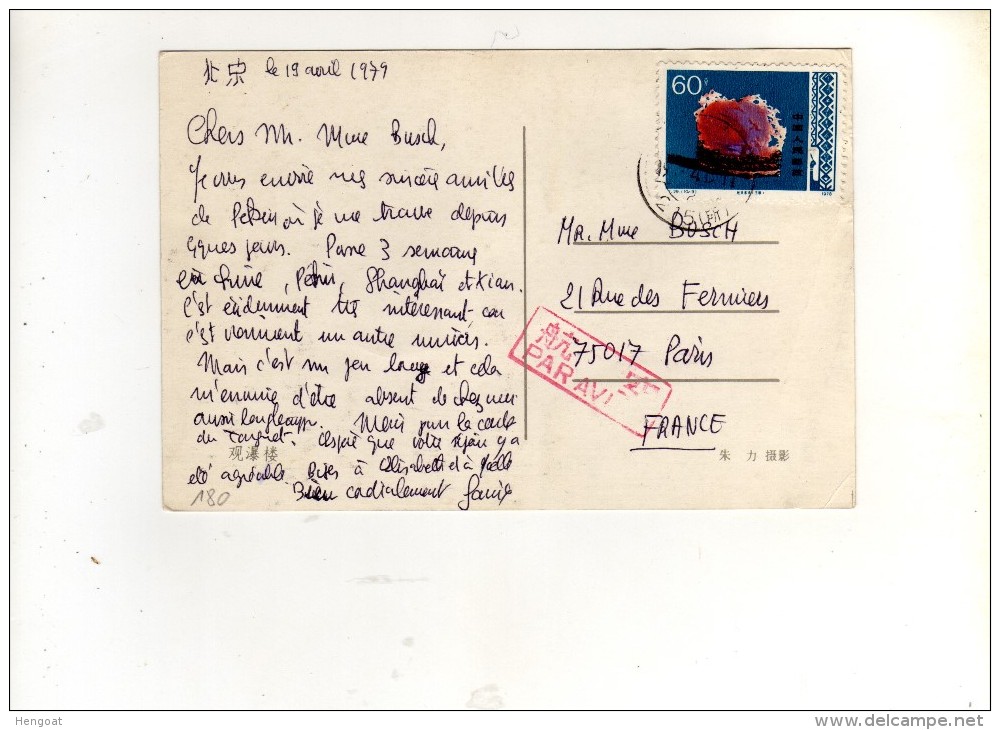 北京 le 19 avril 1979
Chers Mr. Mme Busch,
Je vous envoie mes sincères amitiés
de Pékin où je me trouve depuis
qques jours. Passe 3 semaines
en Chine, Pékin, Shanghaï et Xian.
C'est évidemment très intéressant car
c'est vraiment un autre univers.
Mais c'est un peu long et cela
m'ennuie d'être absent de chez moi
aussi longtemps. Merci pour la carte
du J'espère que votre séjour y a
été agréable. Bises à Elisabeth et à
Bien cordialement
观瀑楼
180
60
中国人民邮政
1978
MR. Mme BUSCH
21 Rue des Fermiers
75017 Paris
FRANCE
航空
PAR AVION
朱 力 摄影
Hengoat
delcampe.net